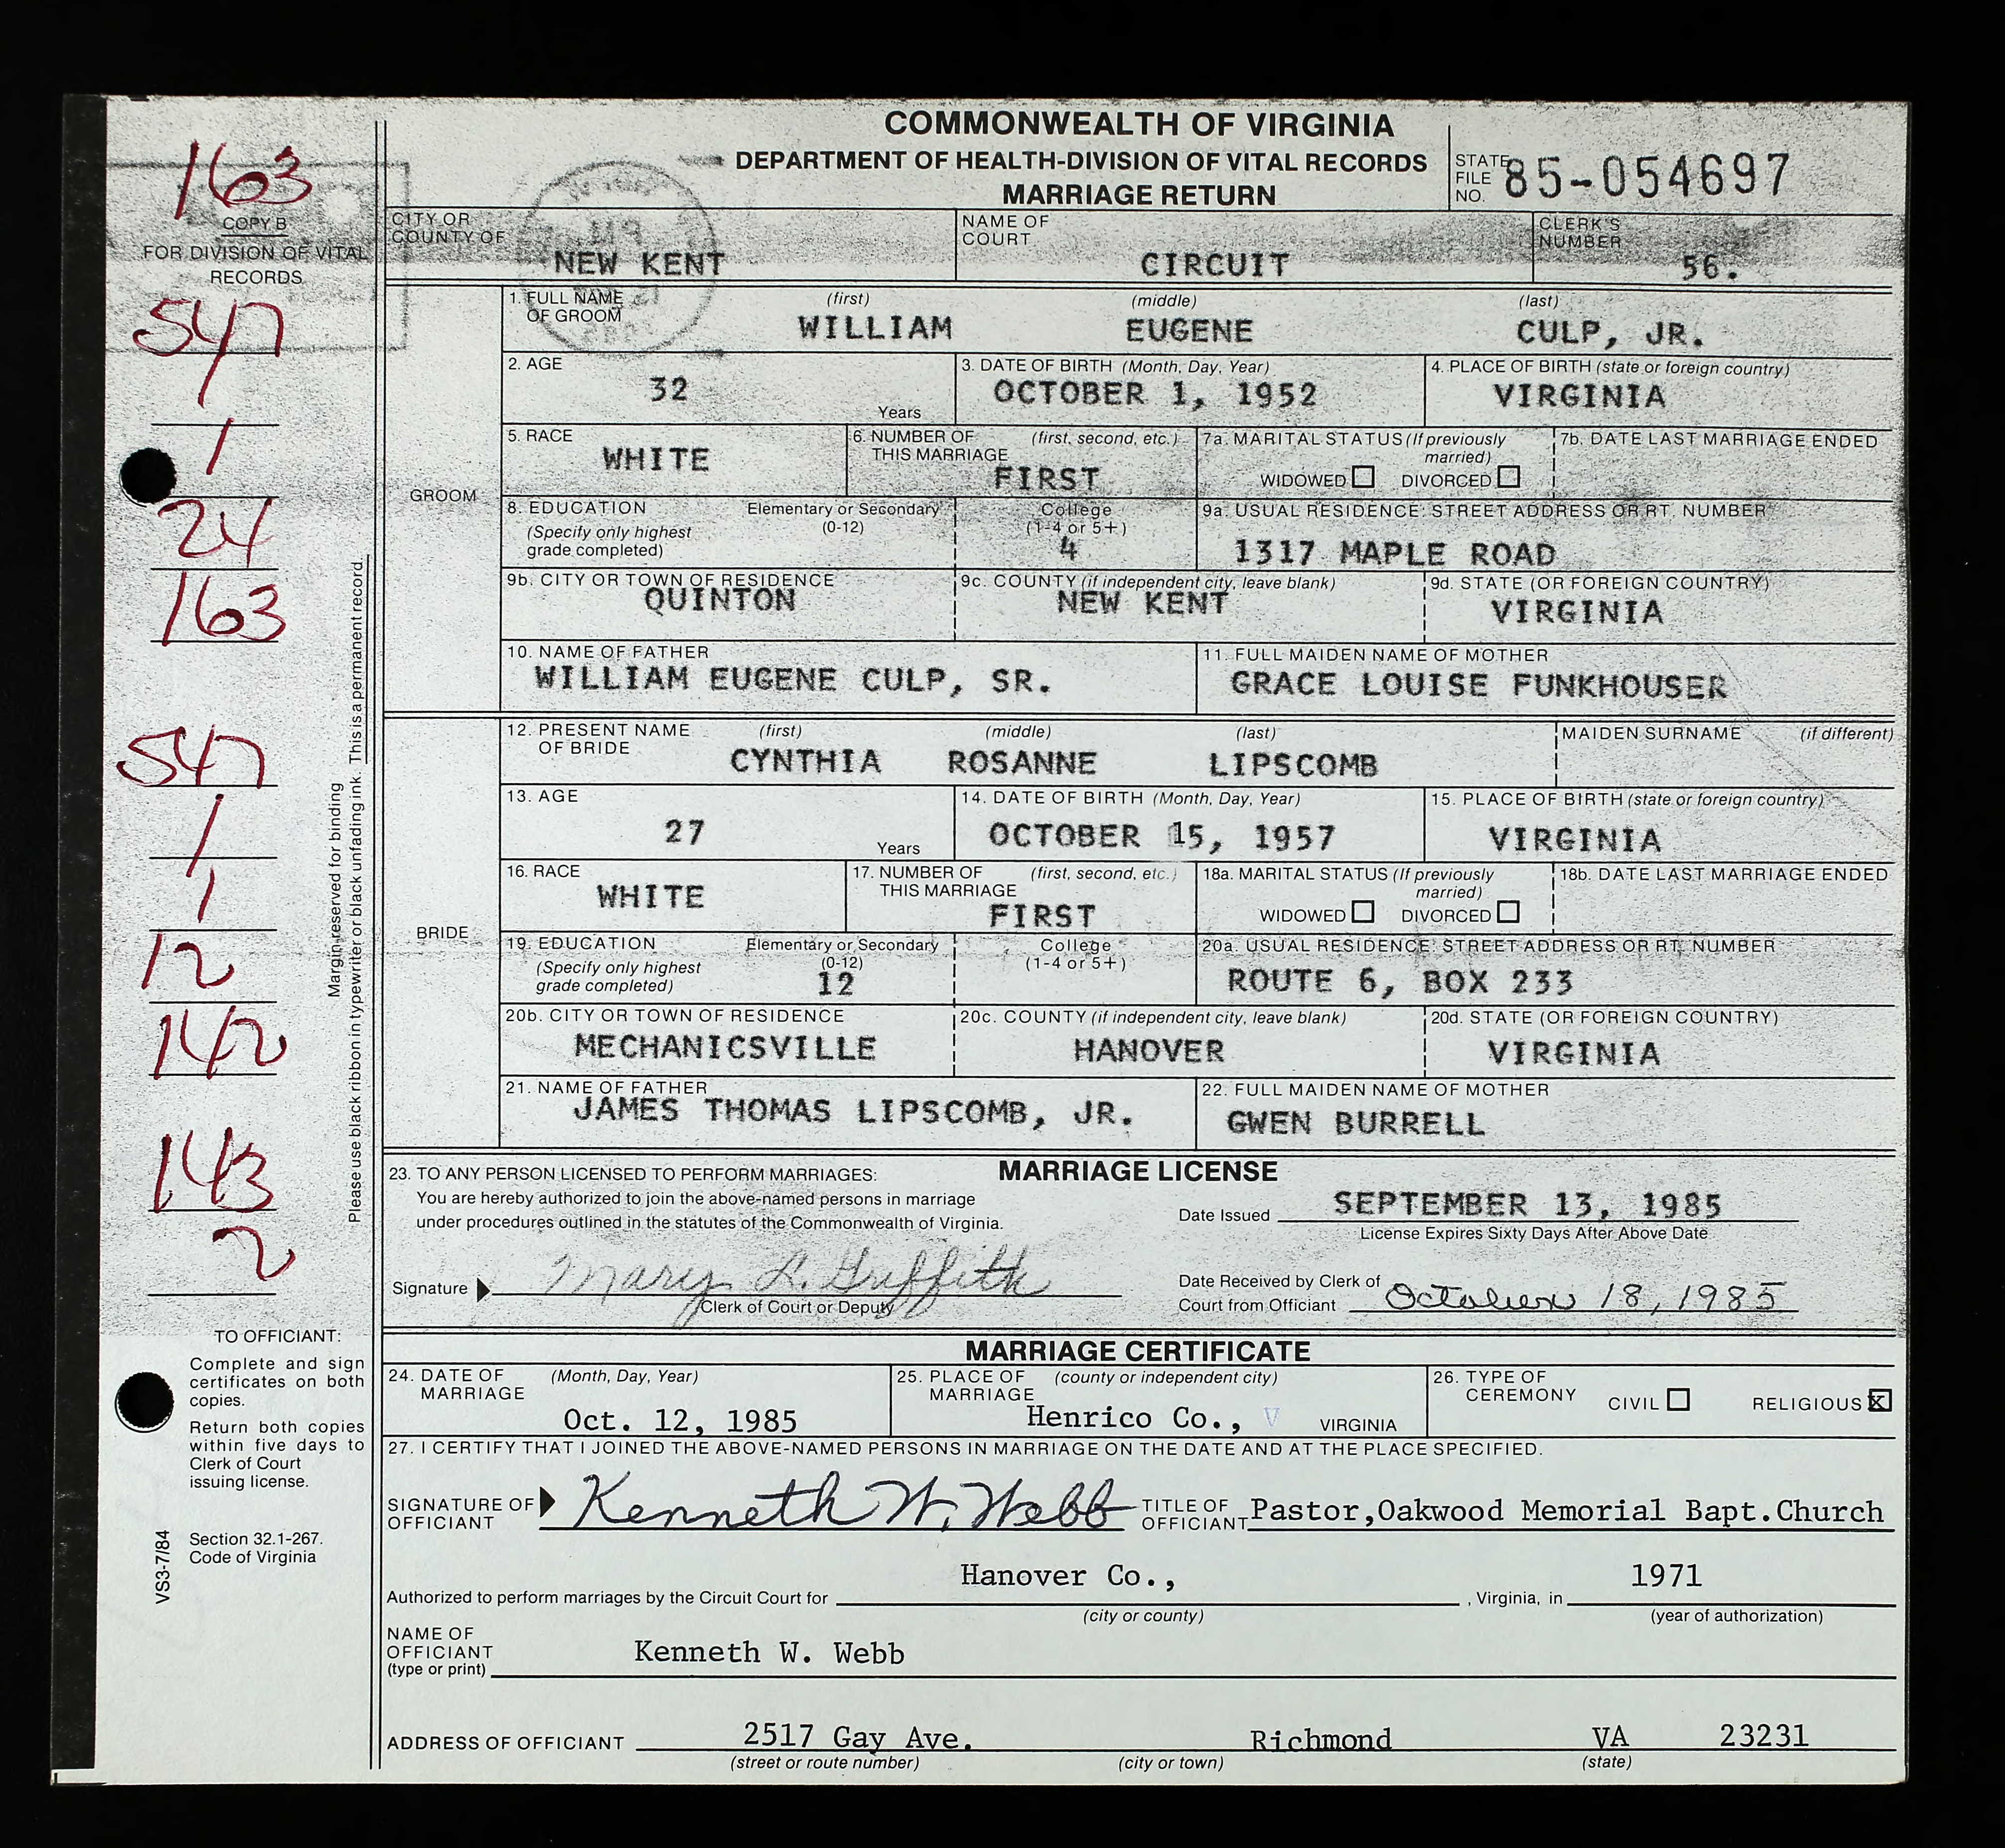 COMMONWEALTH OF VIRGINIA
DEPARTMENT OF HEALTH-DIVISION OF VITAL RECORDS
MARRIAGE RETURN
STATE FILE NO. 85-054697
163
COPY B
FOR DIVISION OF VITAL
RECORDS
547
1
1
24
163
547
1
1
12
142
143
2
Margin reserved for binding
Please use black ribbon in typewriter or black unfading ink. This is a permanent record.
TO OFFICIANT:
Complete and sign
certificates on both
copies.
Return both copies
within five days to
Clerk of Court
issuing license.
Section 32.1-267.
Code of Virginia
VS3-7/84
CITY OR COUNTY OF NEW KENT
NAME OF COURT CIRCUIT
CLERK'S NUMBER 56.
GROOM
1. FULL NAME OF GROOM (first) (middle) (last)
WILLIAM EUGENE CULP, JR.
2. AGE 32 Years
3. DATE OF BIRTH (Month, Day, Year) OCTOBER 1, 1952
4. PLACE OF BIRTH (state or foreign country) VIRGINIA
5. RACE WHITE
6. NUMBER OF THIS MARRIAGE (first, second, etc.) FIRST
7a. MARITAL STATUS (If previously married)
WIDOWED DIVORCED
7b. DATE LAST MARRIAGE ENDED
8. EDUCATION (Specify only highest grade completed)
Elementary or Secondary (0-12)
College (1-4 or 5+) 4
9a. USUAL RESIDENCE: STREET ADDRESS OR RT. NUMBER
1317 MAPLE ROAD
9b. CITY OR TOWN OF RESIDENCE QUINTON
9c. COUNTY (if independent city, leave blank) NEW KENT
9d. STATE (OR FOREIGN COUNTRY) VIRGINIA
10. NAME OF FATHER
WILLIAM EUGENE CULP, SR.
11. FULL MAIDEN NAME OF MOTHER
GRACE LOUISE FUNKHOUSER
BRIDE
12. PRESENT NAME OF BRIDE (first) (middle) (last)
CYNTHIA ROSANNE LIPSCOMB
MAIDEN SURNAME (if different)
13. AGE 27 Years
14. DATE OF BIRTH (Month, Day, Year) OCTOBER 15, 1957
15. PLACE OF BIRTH (state or foreign country) VIRGINIA
16. RACE WHITE
17. NUMBER OF THIS MARRIAGE (first, second, etc.) FIRST
18a. MARITAL STATUS (If previously married)
WIDOWED DIVORCED
18b. DATE LAST MARRIAGE ENDED
19. EDUCATION (Specify only highest grade completed)
Elementary or Secondary (0-12) 12
College (1-4 or 5+)
20a. USUAL RESIDENCE: STREET ADDRESS OR RT. NUMBER
ROUTE 6, BOX 233
20b. CITY OR TOWN OF RESIDENCE MECHANICSVILLE
20c. COUNTY (if independent city, leave blank) HANOVER
20d. STATE (OR FOREIGN COUNTRY) VIRGINIA
21. NAME OF FATHER
JAMES THOMAS LIPSCOMB, JR.
22. FULL MAIDEN NAME OF MOTHER
GWEN BURRELL
MARRIAGE LICENSE
23. TO ANY PERSON LICENSED TO PERFORM MARRIAGES:
You are hereby authorized to join the above-named persons in marriage
under procedures outlined in the statutes of the Commonwealth of Virginia.
Date Issued SEPTEMBER 13, 1985
License Expires Sixty Days After Above Date
Signature Mary L. Griffith
Clerk of Court or Deputy
Date Received by Clerk of
Court from Officiant October 18, 1985
MARRIAGE CERTIFICATE
24. DATE OF MARRIAGE (Month, Day, Year) Oct. 12, 1985
25. PLACE OF MARRIAGE (county or independent city) Henrico Co., V VIRGINIA
26. TYPE OF CEREMONY CIVIL RELIGIOUS X
27. I CERTIFY THAT I JOINED THE ABOVE-NAMED PERSONS IN MARRIAGE ON THE DATE AND AT THE PLACE SPECIFIED.
SIGNATURE OF OFFICIANT Kenneth W. Webb
TITLE OF OFFICIANT Pastor,Oakwood Memorial Bapt.Church
Authorized to perform marriages by the Circuit Court for Hanover Co., , Virginia, in 1971
(city or county) (year of authorization)
NAME OF OFFICIANT (type or print) Kenneth W. Webb
ADDRESS OF OFFICIANT 2517 Gay Ave. Richmond VA 23231
(street or route number) (city or town) (state)